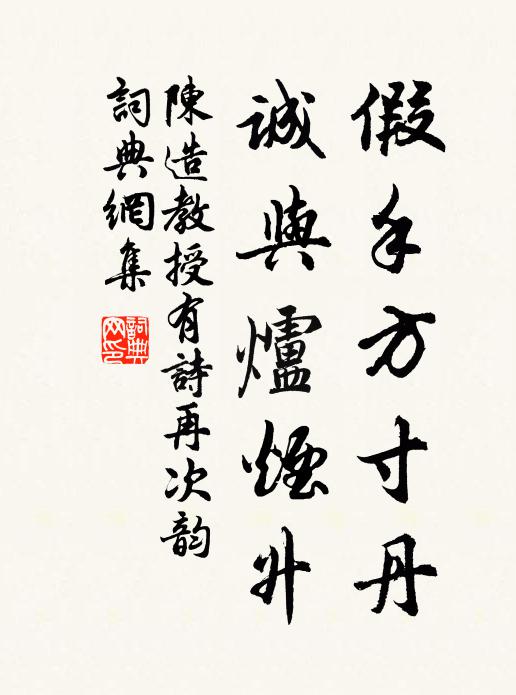 假手方寸丹
誠與爐煙升
陳造教授有詩再次韵
詞典網集
詞典網印